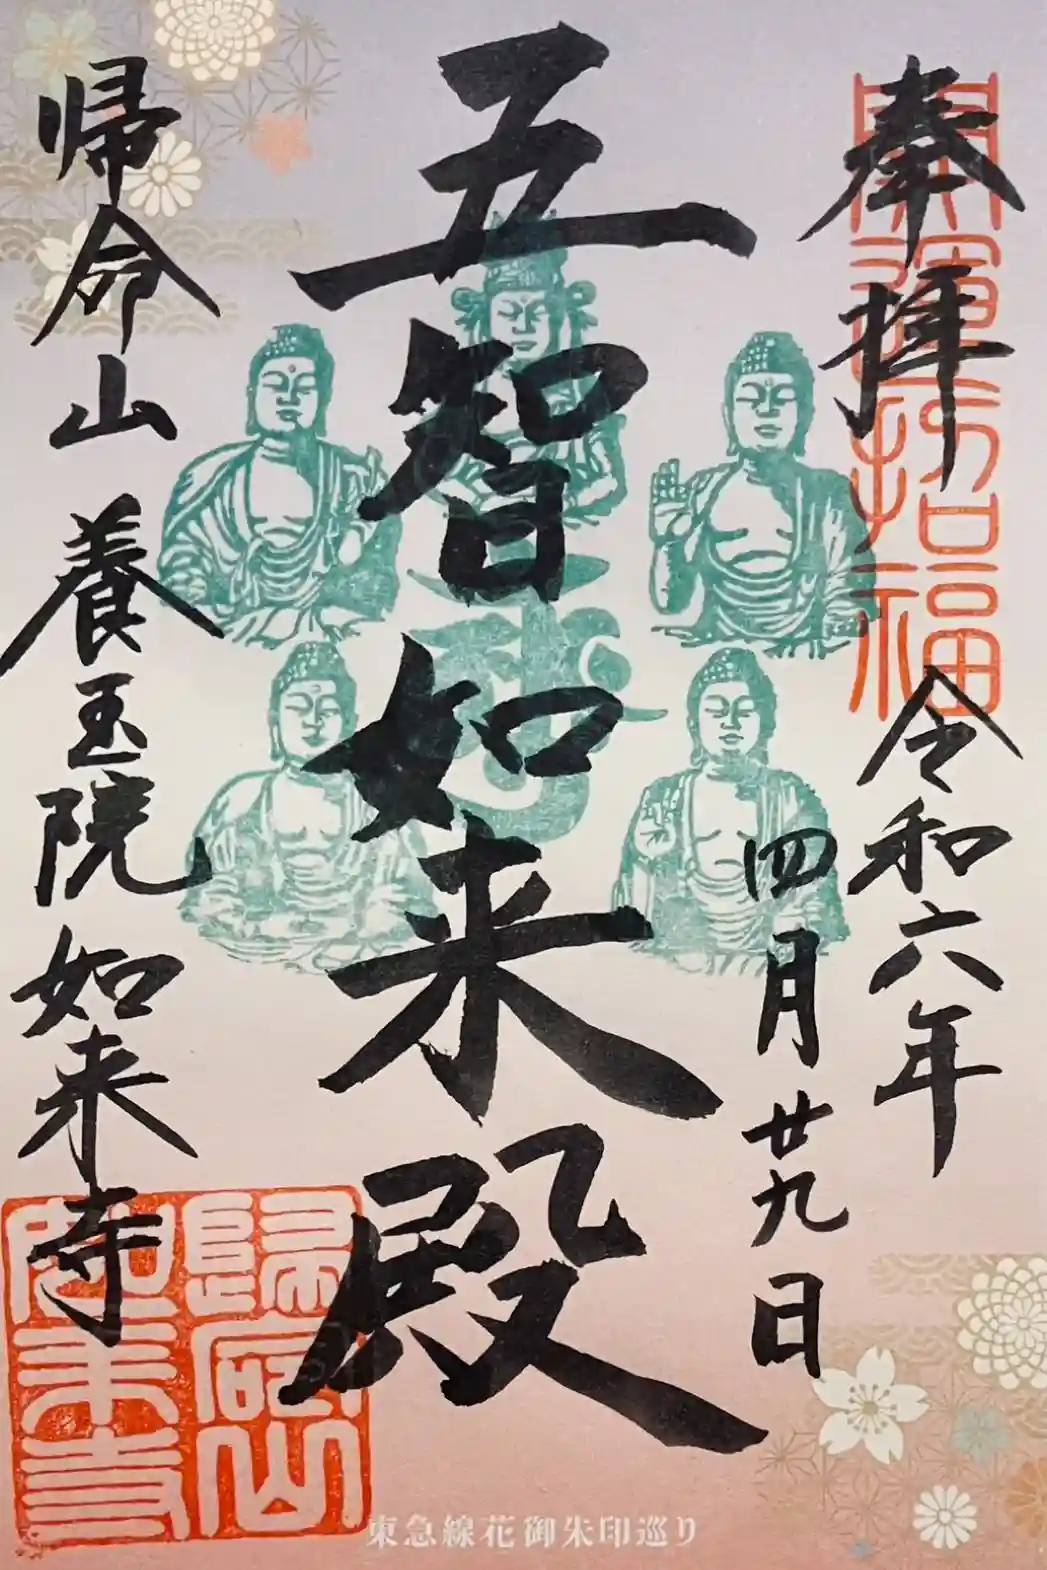 奉拝
開運招福
令和六年
四月廿九日
五智如来殿
帰命山 養玉院 如来寺
歸命山
如来寺
東急線花御朱印巡り